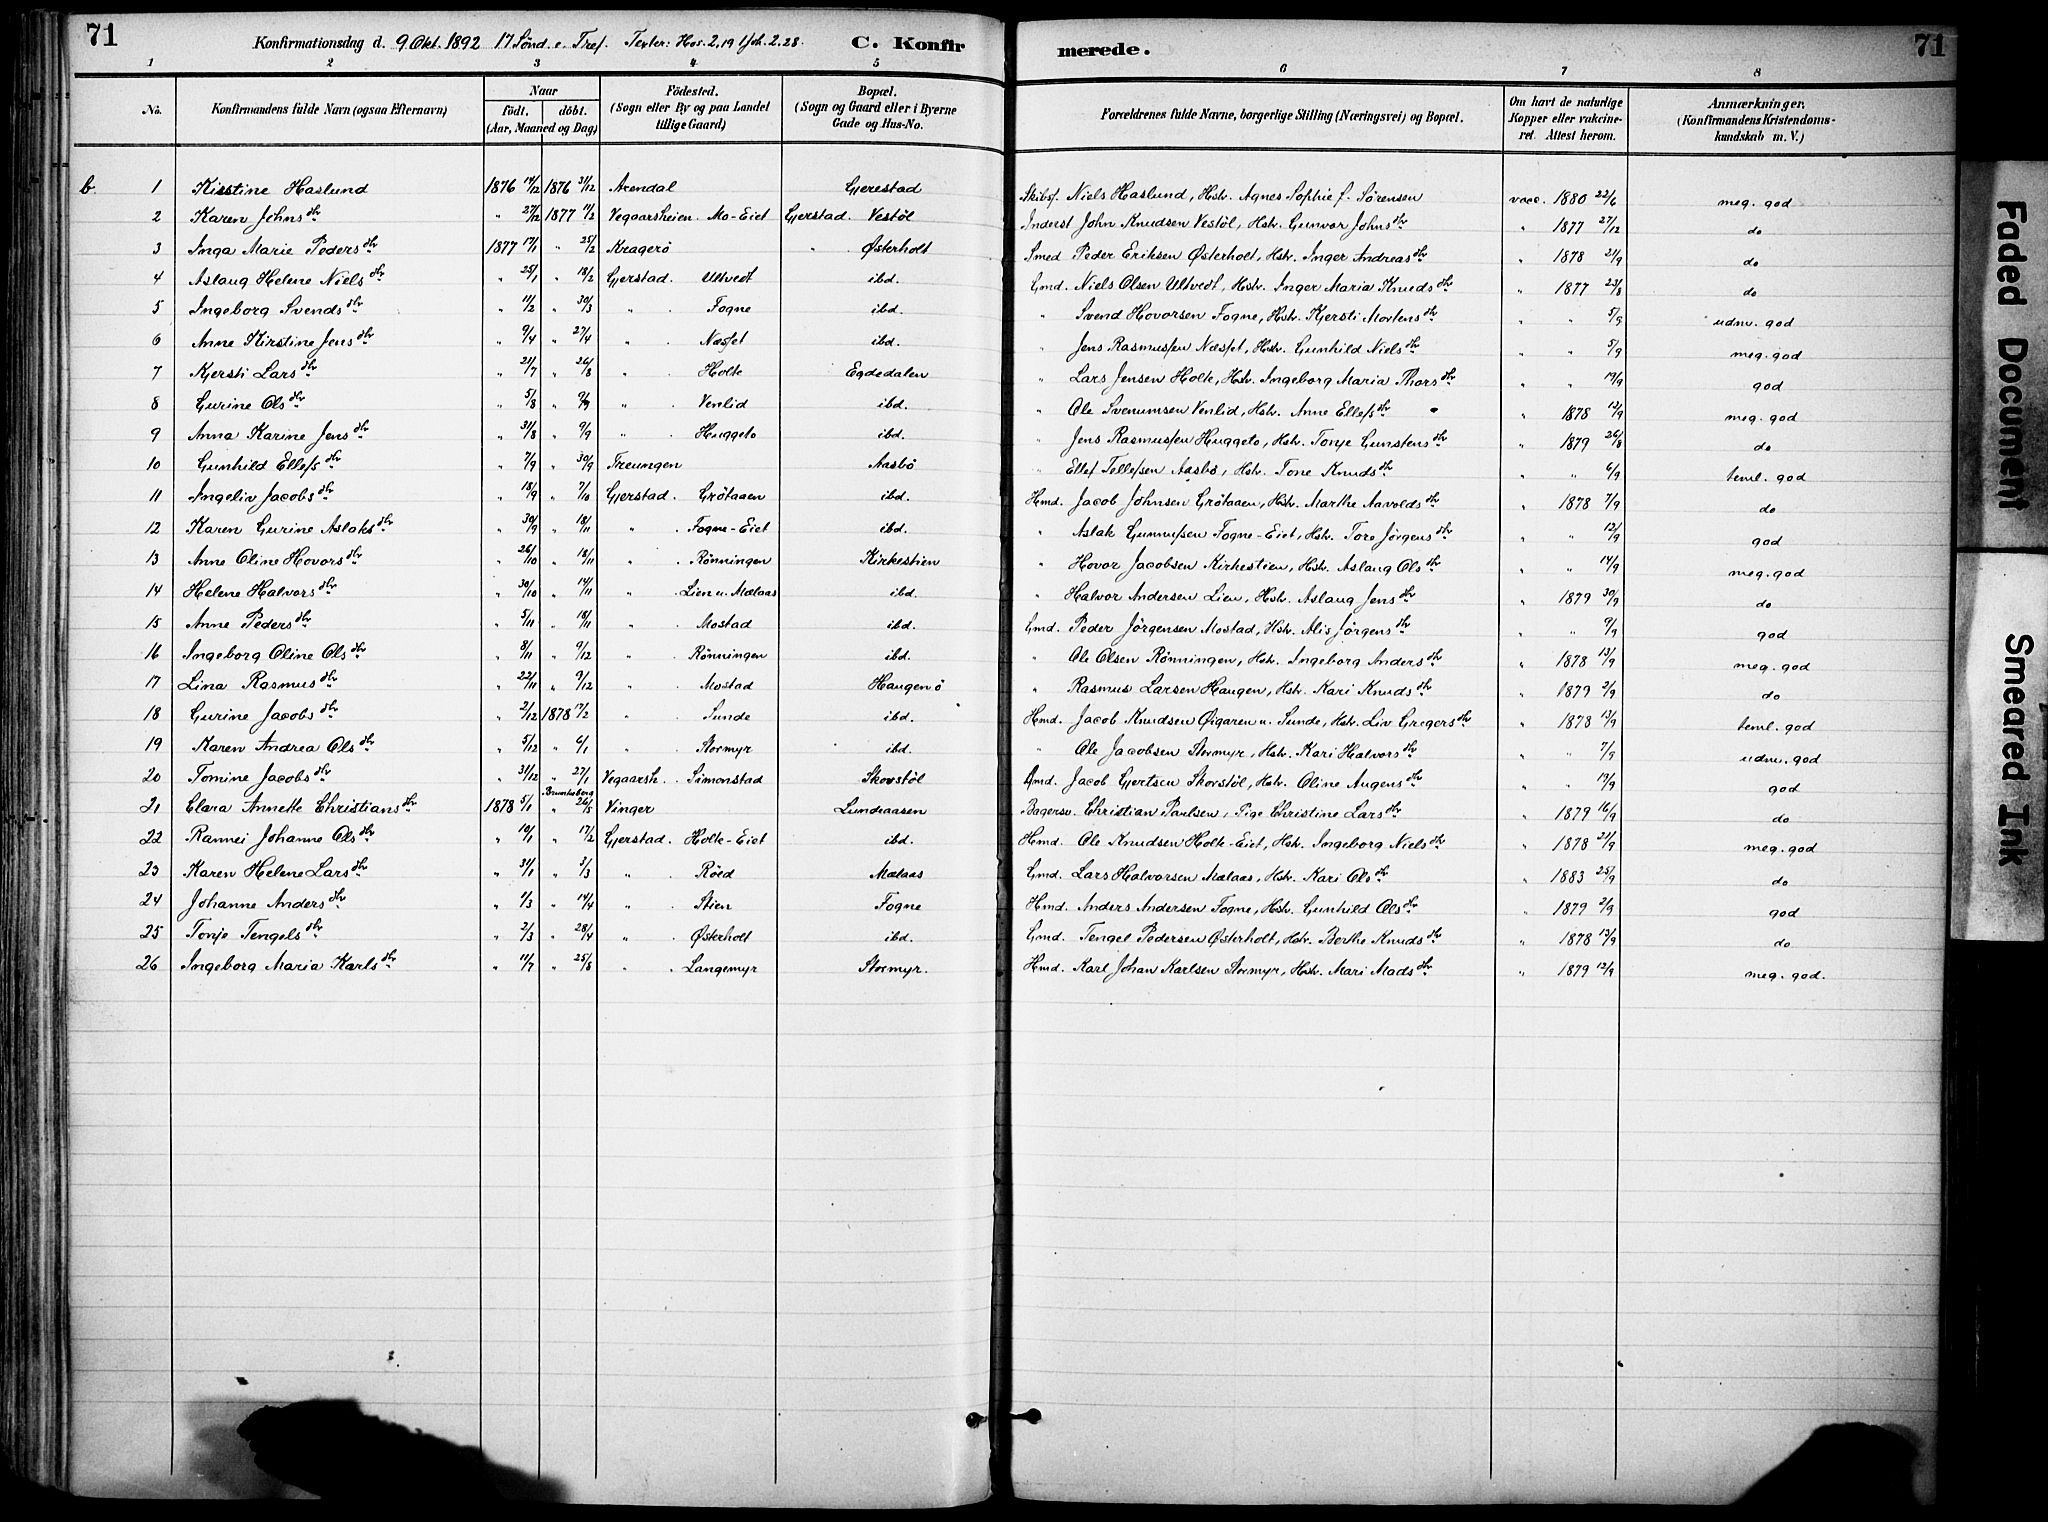 71 Konfirmationsdag d. 9 Okt. 1892 17 Sönd. e. Tref. Texter: Hos. 2,19 1 Joh. 2,28. C. Konfir merede. 71
1 2 3 4 5 6 7 8
No. Konfirmandens fulde Navn (ogsaa Efternavn) Naar födt. döbt. (Aar, Maaned og Dag) Födested. (Sogn eller By og paa Landet tillige Gaard) Bopæl. (Sogn og Gaard eller i Byerne Gade og Hus-No. Forældrenes fulde Navne, borgerlige Stilling (Næringsvei) og Bopæl. Om havt de naturlige Kopper eller vakcineret. Attest herom. Anmærkninger. (Konfirmandens Kristendomskundskab m. V.)
b. 1 Kisstine Haslund 1876 14/12 1876 31/12 Arendal Gjerestad Skibsf. Niels Haslund, Hstr. Agnes Sophie f. Sörensen vacc. 1880 22/6 meg. god
2 Karen Johns dtr " 27/12 1877 11/2 Vegaarsheien. Mo-Eiet Gjerstad. Vestöl Inderst John Knudsen Vestöl, Hstr. Gunvor Johns dtr " 1877 27/12 do
3 Inga Marie Peders dtr 1877 17/1 " 25/2 Kragerö " Østerholt Smed Peder Eriksen Østerholt, Hstr. Inger Andreas dtr " 1878 21/9 do
4 Aslaug Helene Niels dtr " 25/1 " 18/2 Gjerstad. Ultvedt ibd. Gmd. Niels Olsen Ultvedt, Hstr. Inger Maria Knuds dtr " 1877 23/8 do
5 Ingeborg Svends dtr " 11/2 " 30/3 " . Fogne ibd. " Svend Hovorsen Fogne, Hstr. Kjersti Mortens dtr " " 5/9 udm. god
6 Anne Kirstine Jens dtr " 9/4 " 27/4 " . Næsset ibd. " Jens Rasmussen Næsset, Hstr. Gunhild Niels dtr " " 5/9 meg. god
7 Kjersti Lars dtr " 21/7 " 26/8 " . Holte Egdedalen " Lars Jensen Holte, Hstr. Ingeborg Maria Thors dtr " " 19/9 god
8 Gurine Ols dtr " 5/8 " 9/9 " . Venlid ibd. " Ole Svenumsen Venlid, Hstr. Anne Ellefs dtr " 1878 13/9 meg. god
9 Anna Karine Jens dtr " 31/8 " 9/9 " . Huggeto ibd. " Jens Rasmussen Huggeto, Hstr. Tonje Gunstens dtr " 1879 26/8 do
10 Gunhild Ellefs dtr " 7/9 " 30/9 Treungen Aasbö " Ellef Tellefsen Aasbö, Hstr. Tone Knuds dtr " " 6/9 teml. god
11 Angeliv Jacobs dtr " 18/9 " 7/10 Gjerstad. Grötaaen ibd. Hmd. Jacob Johnsen Grötaaen, Hstr. Marthe Aavolds dtr " 1878 7/9 do
12 Karen Gurine Aslaks dtr " 30/9 " 18/11 " . Fogne-Eiet ibd. " Aslak Gunnufsen Fogne-Eiet, Hstr. Tore Jörgens dtr " " 12/9 god
13 Anne Oline Hovors dtr " 26/10 " 18/11 " . Rönningen Kirkestien " Hovor Jacobsen Kirkestien, Hstr. Aslaug Ols dtr " " 14/9 meg. god
14 Helene Halvors dtr " 30/10 " 14/11 " . Lien u. Mælaas ibd. " Halvor Andersen Lien, Hstr. Aslaug Jens dtr " 1879 30/9 do
15 Anne Peders dtr " 5/11 " 18/11 " . Mostad ibd. Gmd. Peder Jörgensen Mostad, Hstr. Alis Jörgens dtr " " 9/9 god
16 Ingeborg Oline Ols dtr " 8/11 " 9/12 " . Rönningen ibd. " Ole Olsen Rönningen, Hstr. Ingeborg Anders dtr " 1878 13/9 meg. god
17 Lina Rasmus dtr " 22/11 " 9/12 " . Mostad Haugen ö " Rasmus Larsen Haugen, Hstr. Kari Knuds dtr " 1879 2/9 do
18 Gurine Jacobs dtr " 2/12 1878 17/2 " . Sunde ibd. Hmd. Jacob Knudsen Øigaren u. Sunde, Hstr. Liv Gregers dtr " 1878 13/9 teml. god
19 Karen Andrea Ols dtr " 5/12 " 6/1 " . Stormyr ibd. " Ole Jacobsen Stormyr, Hstr. Kari Halvors dtr " " 7/9 udm. god
20 Tomine Jacobs dtr " 31/12 " 27/1 Vegaarsh. . Simonstad Skovstöl Gmd. Jacob Gjertsen Skovstöl, Hstr. Oline Augens dtr " " 19/9 god
21 Clara Annette Christians dtr 1878 5/1 " 26/5 Vinger Lundaasen Bagersv. Christian Paulsen, Pige Christine Lars dtr " 1879 16/9 do
22 Rannei Johanne Ols dtr " 10/1 " 17/2 Gjerstad. Holte-Eiet ibd. Hmd. Ole Knudsen Holte-Eiet, Hstr. Ingeborg Niels dtr " 1878 21/9 meg. god
23 Karen Helene Lars dtr " 31/1 " 3/3 " . Röed Mælaas Gmd. Lars Halvorsen Mælaas, Hstr. Kari Ols dtr " 1883 25/9 do
24 Johanne Anders dtr " 1/3 " 14/4 " . Stien Fogne Hmd. Anders Andersen Fogne, Hstr. Gunhild Ols dtr " 1879 2/9 god
25 Tonje Tengels dtr " 2/3 " 28/4 " . Østerholt ibd. Gmd. Tengel Pedersen Østerholt, Hstr. Berthe Knuds dtr " 1878 13/9 do
26 Ingeborg Maria Karls dtr " 11/7 " 25/8 " . Langemyr Stormyr. Hmd. Karl Johan Karlsen Stormyr, Hstr. Mari Mads dtr " 1879 12/9 meg. god.
Faded Document
Smeared Ink